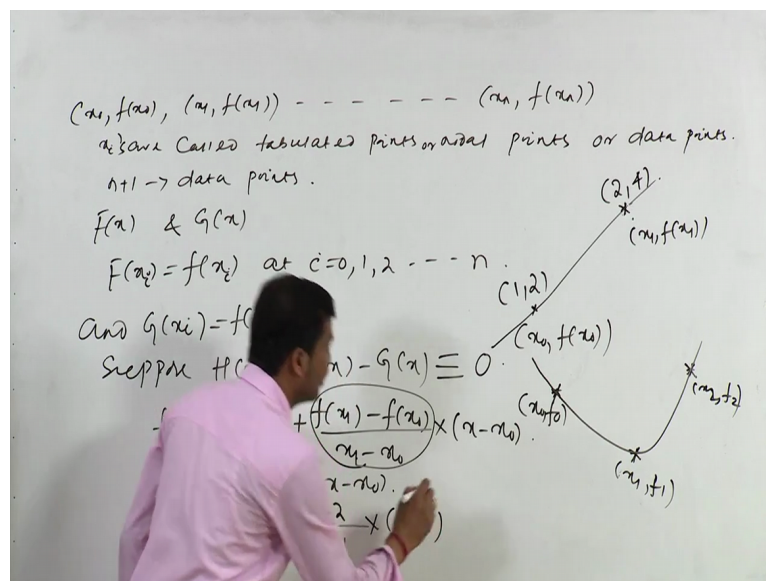 (x₀, f(x₀), (x₁, f(x₁)) - - - - - - - (xₙ, f(xₙ))
xᵢ's are called tabulated points or nodal points or data points.
n+1 → data points.
F(x) & G(x)
F(xᵢ) = f(xᵢ) at i=0,1,2 - - - n.
and G(xi) = f(
Suppose H( x) - G(x) ≡ 0
+ f(x₁) - f(x₀) / x₁ - x₀ × (x - x₀).
x - x₀).
2 × ( )
(2,4).
(x₁, f(x₁))
(1,2)
(x₀, f(x₀))
(x₀, f₀)
(x₂, f₂)
(x₁, f₁)